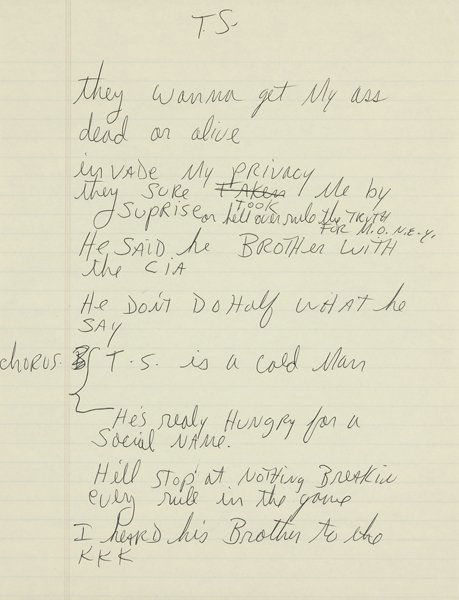 T.S.
they wanna get My ass
dead or alive
inVADE My PRIVACY
they SURE TAKEN Me by
TOOK
SUPRISE or he'll overrule the TRUTH
FOR M.O.N.E.Y.
He SAID he BROTHER WITH
the CIA
He DON'T DO Half WHAT he
SAY
chorus. T.S. is a cold Man
He's realy HUNGRY for a
Social NAME.
He'll STOP at NOTHING BREAKIN
every rule in the game
I heARD his Brother to the
KKK